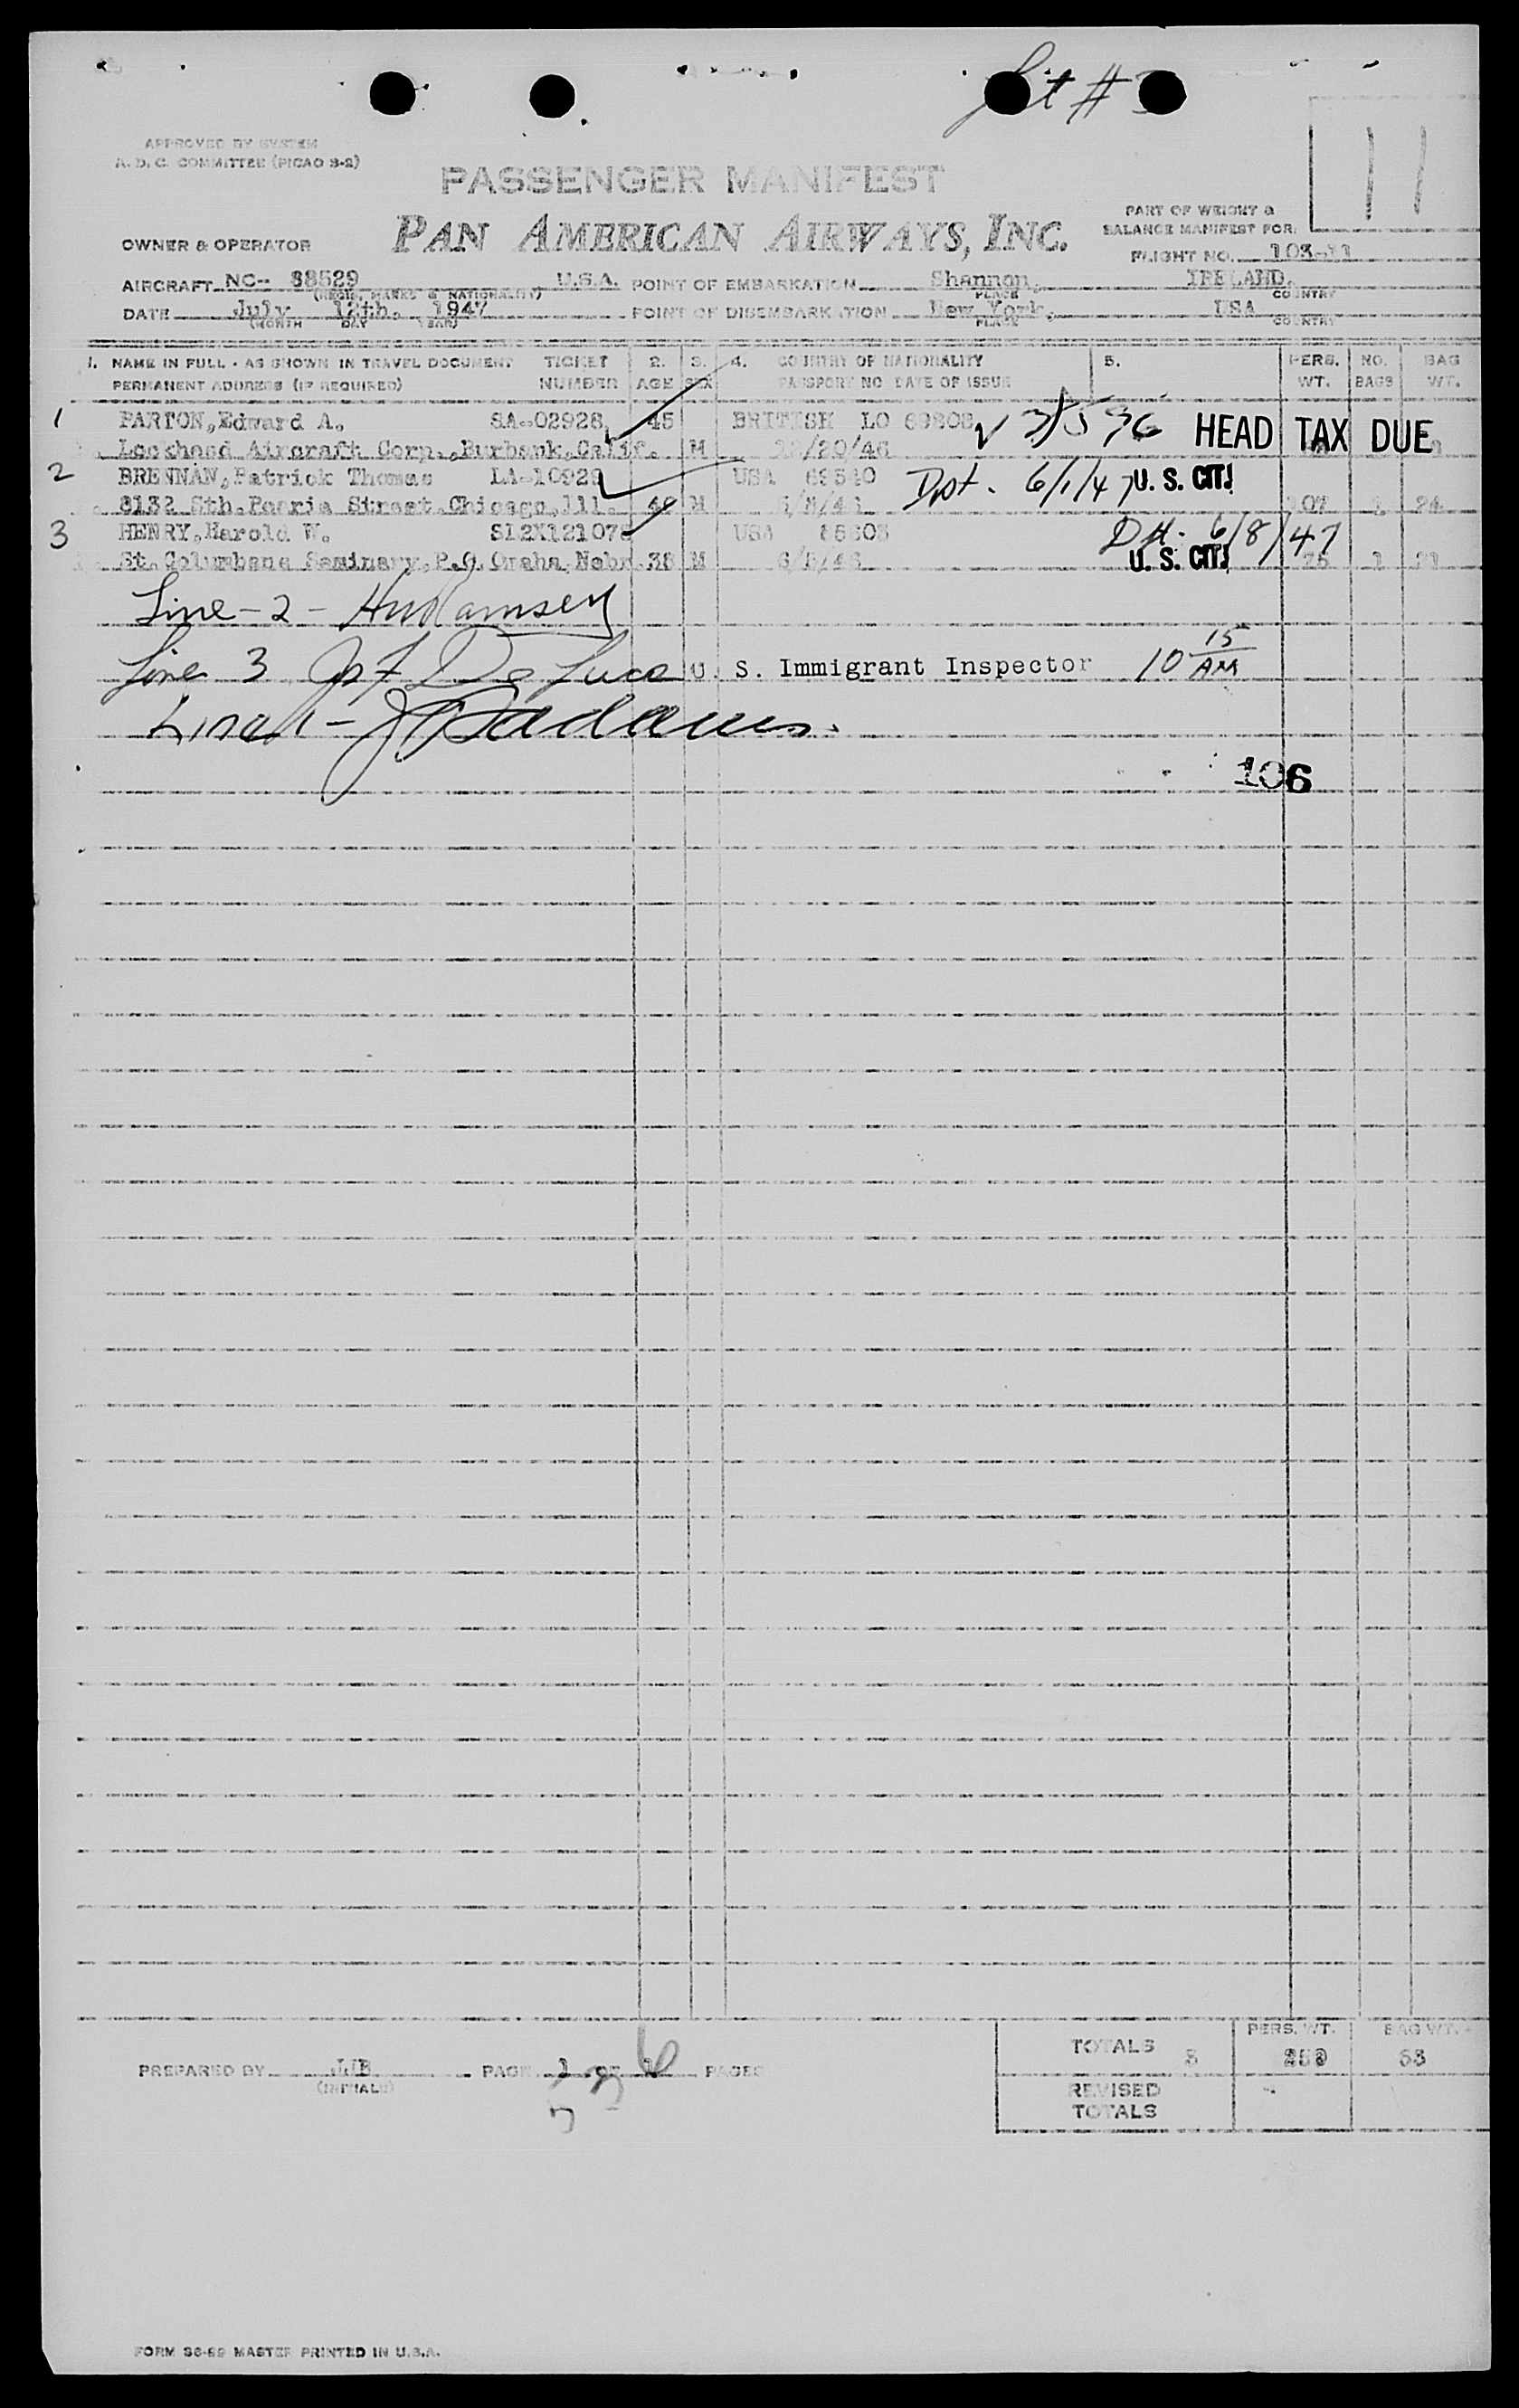 11
APPROVED BY SYSTEM
A. D. C. COMMITTEE (PICAO S-2)
PASSENGER MANIFEST
PAN AMERICAN AIRWAYS, INC.
PART OF WEIGHT &
BALANCE MANIFEST FOR:
OWNER & OPERATOR
FLIGHT NO. 103-11
AIRCRAFT NC-- 88529 U.S.A. POINT OF EMBARKATION Shannon, IRELAND.
(REGIS. MARKS & NATIONALITY) PLACE COUNTRY
DATE July 12th. 1947 POINT OF DISEMBARKATION New York, USA
(MONTH DAY YEAR) PLACE COUNTRY
1. NAME IN FULL - AS SHOWN IN TRAVEL DOCUMENT TICKET 2. 3. 4. COUNTRY OF NATIONALITY 5. PERS. NO. BAG
PERMANENT ADDRESS (IF REQUIRED) NUMBER AGE SEX PASSPORT NO DATE OF ISSUE WT. BAGS WT.
1 PARTON, Edward A. SA-02928 45 BRITISH LO HEAD TAX DUE
Lockheed Aircraft Corp., Burbank, Calif. M /20/46
2 BRENNAN, Patrick Thomas LA-10929 USA Dpt. 6/1/47 U. S. CIT!
8132 Sth. Peoria Street, Chicago, Ill. M 24
3 HENRY, Harold W. USA Dpt. 6/8/47
St. Columbans Seminary, P.O. Omaha, Nebr. 38 M U. S. CIT!
Line - 2 -
Line 3 De Luca U. S. Immigrant Inspector 10 15 AM
Line 1 -
106
TOTALS 3 PERS. WT. BAG WT.
PREPARED BY PAGE OF PAGES
(INITIALS)
REVISED
TOTALS
FORM SC-69 MASTER PRINTED IN U.S.A.